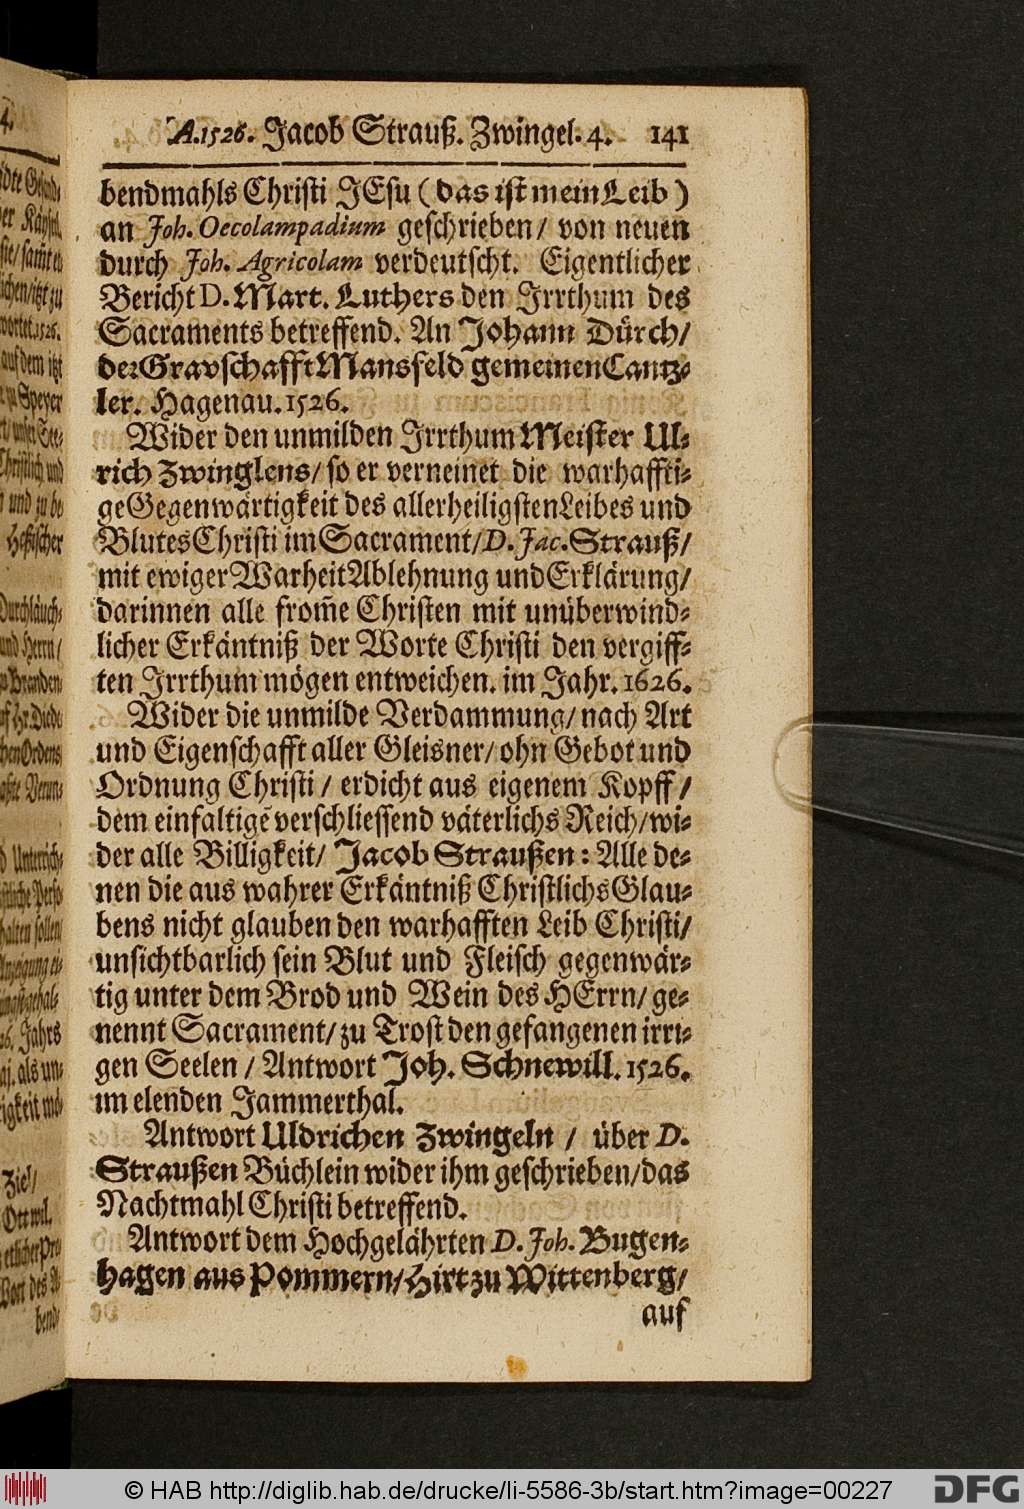 A.1526. Jacob Strauß. Zwingel. 4. 141
bendmahls Christi JEsu (das ist mein Leib)
an Joh. Oecolampadium geschrieben / von neuen
durch Joh. Agricolam verdeutscht. Eigentlicher
Bericht D. Mart. Luthers den Irrthum des
Sacraments betreffend. An Johann Dürch/
der Gravschafft Mansfeld gemeinen Cantz-
ler. Hagenau. 1526.
Wider den unmilden Irrthum Meister Ul-
rich Zwinglens / so er verneinet die warhaffti-
ge Gegenwärtigkeit des allerheiligsten Leibes und
Blutes Christi im Sacrament / D. Jac. Strauß /
mit ewiger Warheit Ablehnung und Erklärung /
darinnen alle from̃e Christen mit unüberwind-
licher Erkäntniß der Worte Christi den vergiff-
ten Irrthum mögen entweichen. im Jahr. 1626.
Wider die unmilde Verdammung / nach Art
und Eigenschafft aller Gleisner / ohn Gebot und
Ordnung Christi / erdicht aus eigenem Kopff /
dem einfaltigẽ verschliessend väterlichs Reich / wi-
der alle Billigkeit / Jacob Straußen : Alle de-
nen die aus wahrer Erkäntniß Christlichs Glau-
bens nicht glauben den warhafften Leib Christi /
unsichtbarlich sein Blut und Fleisch gegenwär-
tig unter dem Brod und Wein des HErrn / ge-
nennt Sacrament / zu Trost den gefangenen irri-
gen Seelen / Antwort Joh. Schnewill. 1526.
im elenden Jammerthal.
Antwort Uldrichen Zwingeln / über D.
Straußen Büchlein wider ihm geschrieben / das
Nachtmahl Christi betreffend.
Antwort dem Hochgelährten D. Joh. Bugen-
hagen aus Pommern / Hirt zu Wittenberg /
auf
© HAB http://diglib.hab.de/drucke/li-5586-3b/start.htm?image=00227
DFG